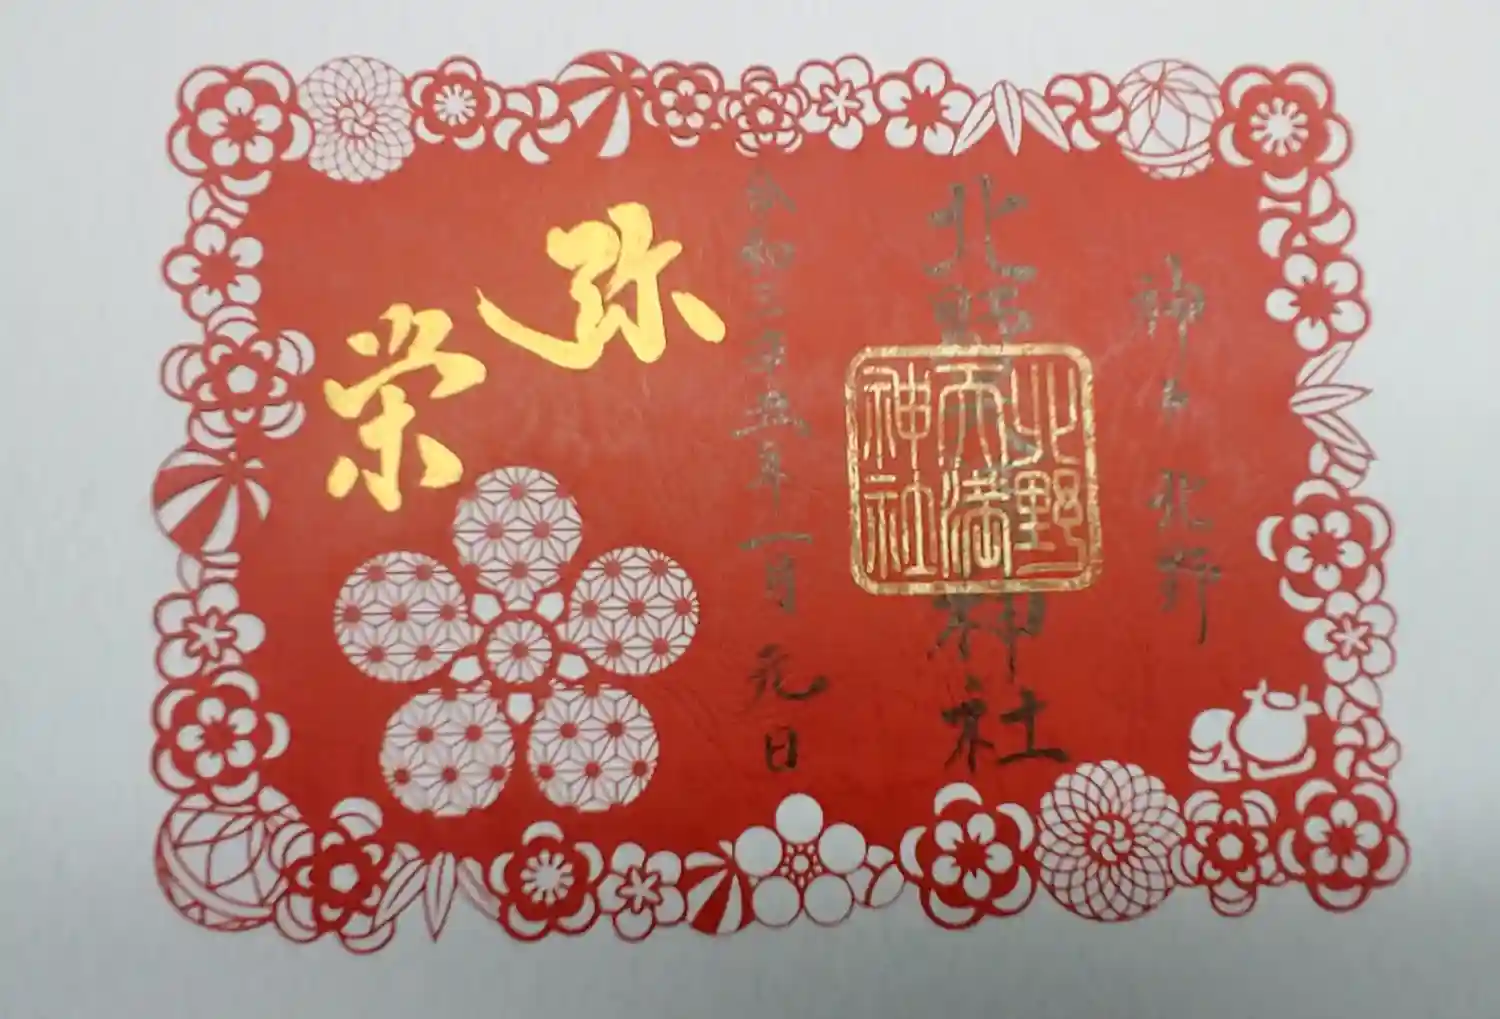 神戸 北野
北野天満神社
北野
天満
神社
令和 年一月元日
弥栄